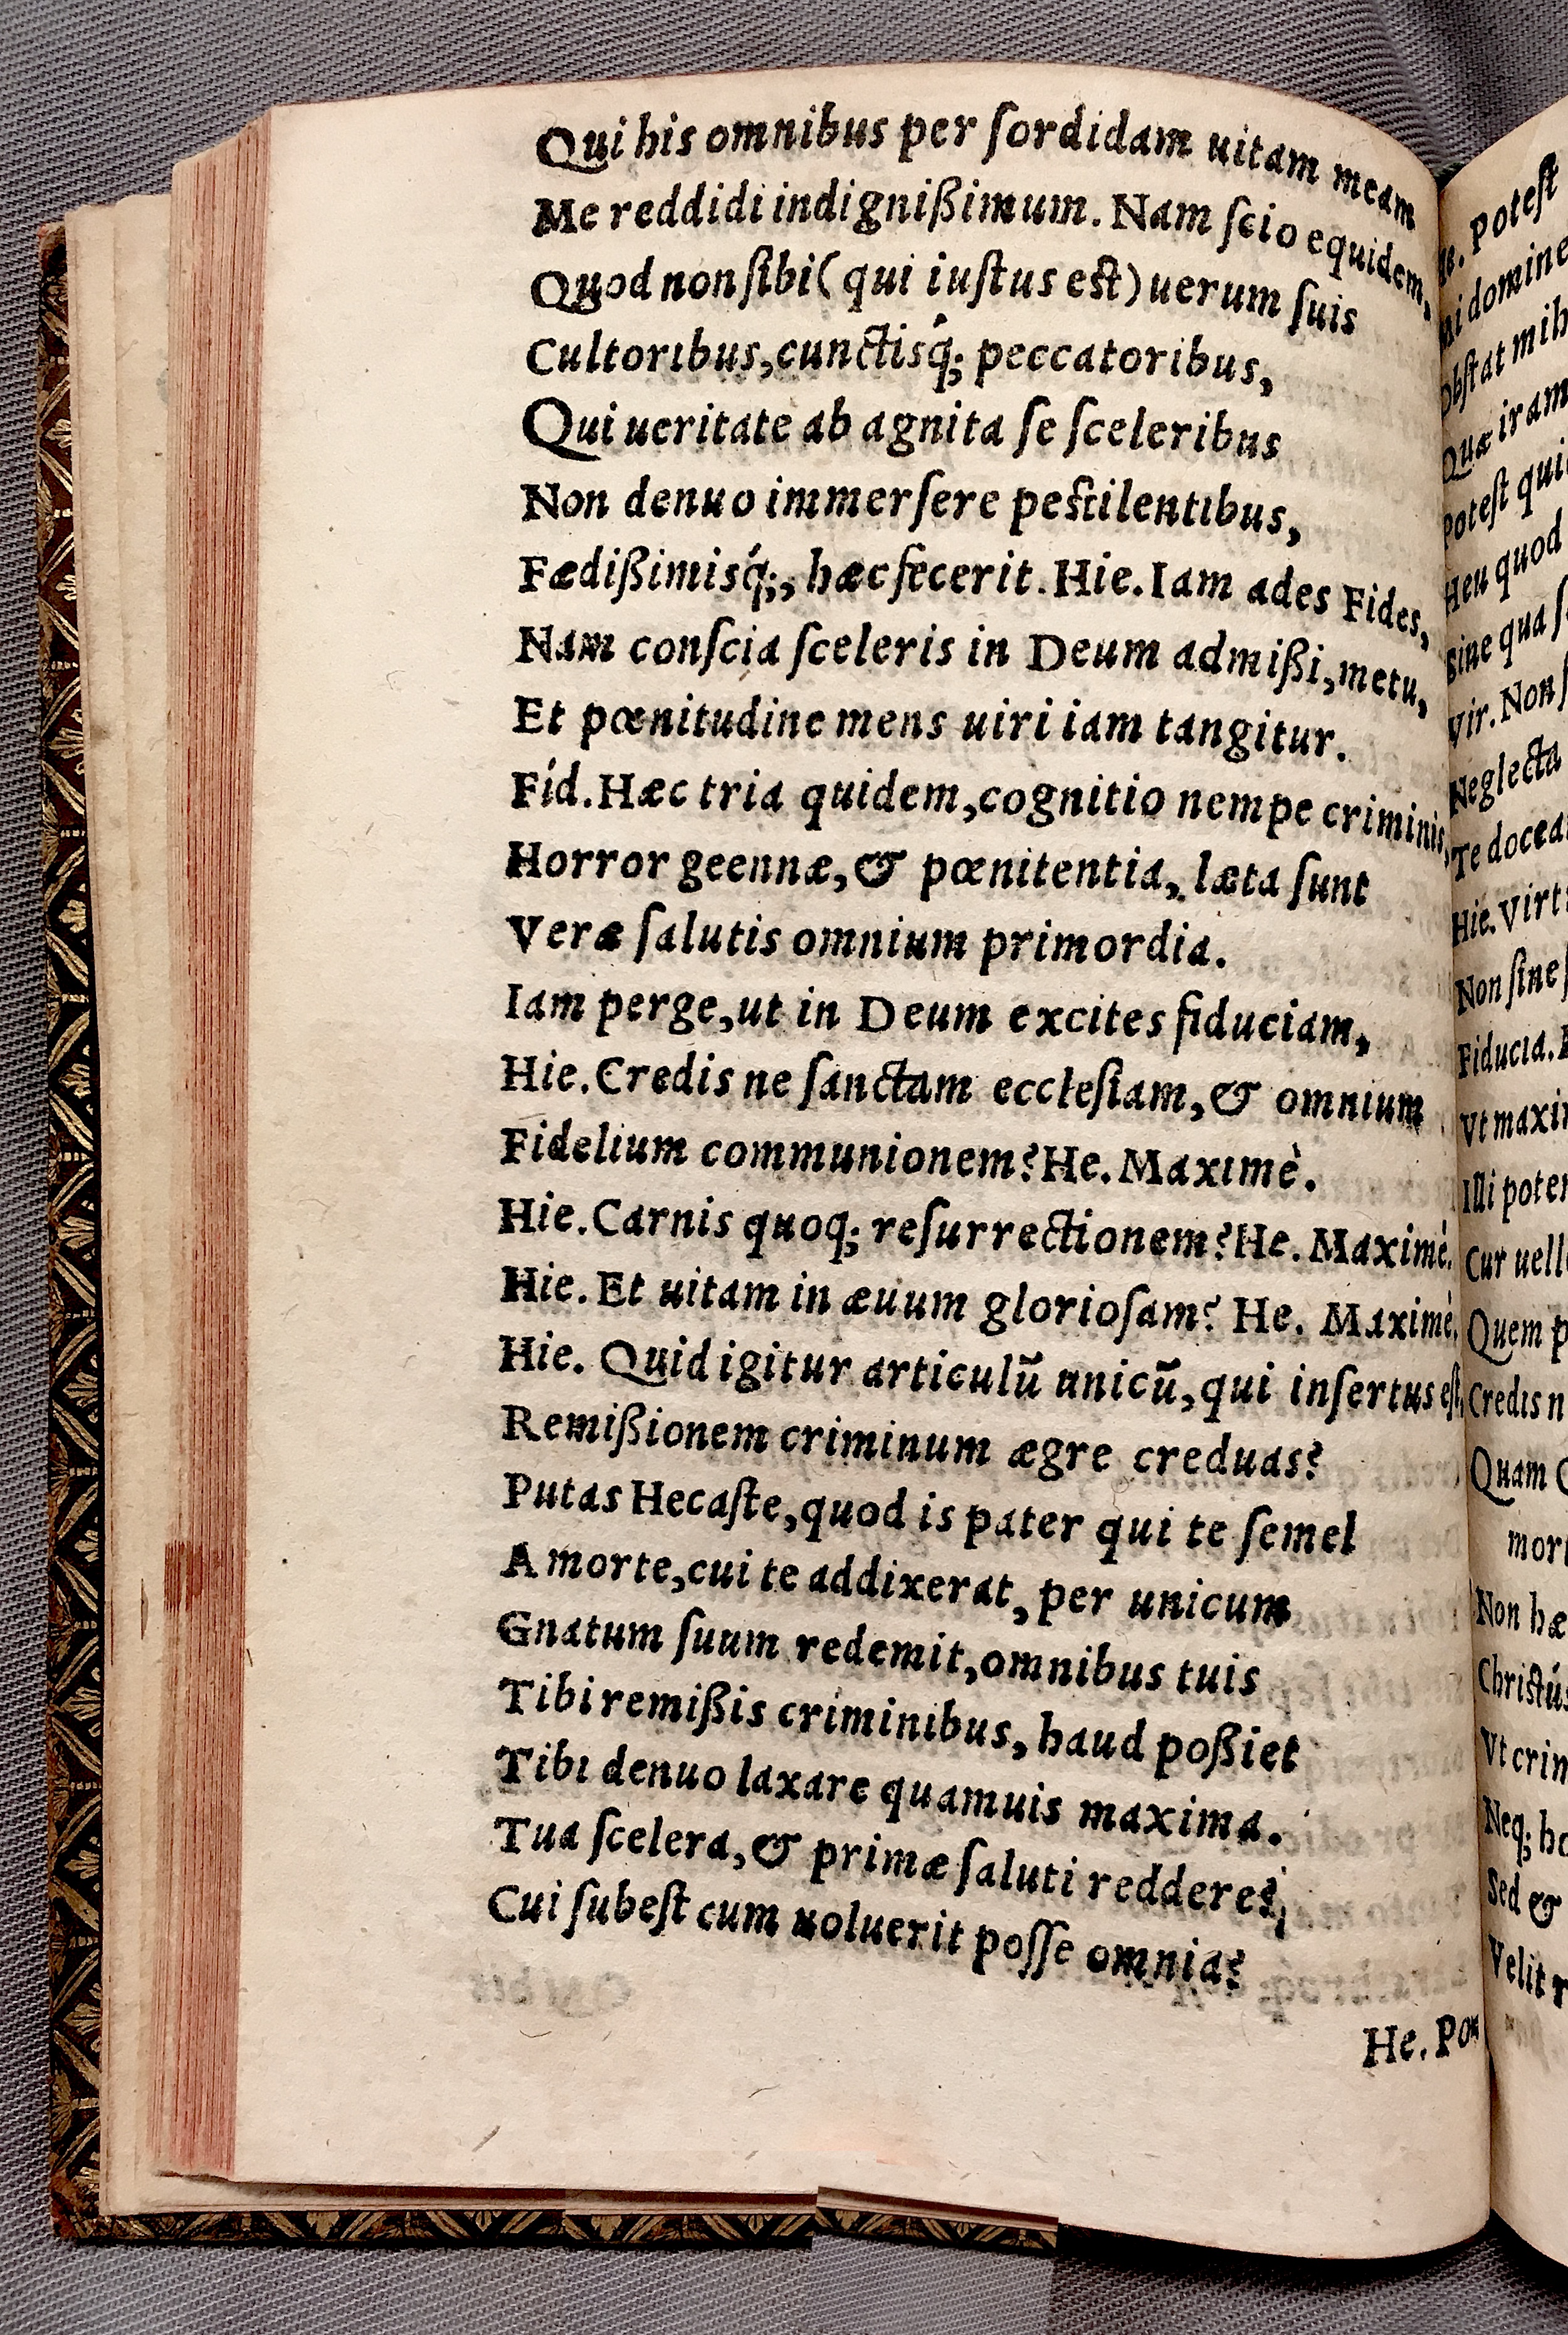 Qui his omnibus per ſordidam uitam meam
Me reddidi indignißimum. Nam ſcio equidem,
Quod non ſibi ( qui iuſtus eſt ) uerum ſuis
Cultoribus, cunctisq́; peccatoribus,
Qui ueritate ab agnita ſe ſceleribus
Non denuo immerſere peſtilentibus,
Fædißimisq́;, hæc fecerit. Hie. Iam ades Fides,
Nam conſcia ſceleris in Deum admißi, metu,
Et pœnitudine mens uiri iam tangitur.
Fid. Hæc tria quidem, cognitio nempe criminis,
Horror geennæ, & pœnitentia, læta ſunt
Veræ ſalutis omnium primordia.
Iam perge, ut in Deum excites fiduciam,
Hie. Credis ne ſanctam eccleſiam, & omnium
Fidelium communionem? He. Maximè.
Hie. Carnis quoq; reſurrectionem? He. Maximè.
Hie. Et uitam in æuum glorioſam? He. Maximè.
Hie. Quid igitur articulū unicū, qui inſertus eſt,
Remißionem criminum ægre creduas?
Putas Hecaſte, quod is pater qui te ſemel
A morte, cui te addixerat, per unicum
Gnatum ſuum redemit, omnibus tuis
Tibi remißis criminibus, haud poßiet
Tibi denuo laxare quamuis maxima.
Tua ſcelera, & primæ ſaluti reddere?
Cui ſubeſt cum uoluerit poſſe omnia?
He. Po
poteſt
domine
Obſtat
Quæ iram
Poteſt
Heu quod
Sine qua
Vir. Non
Neglecta
Te
Hie.
Non ſine
Fiducia.
Vt
Illi
Cur
Quem
Credis
Quam
Non
Vt
Neq;
Sed &
Velit